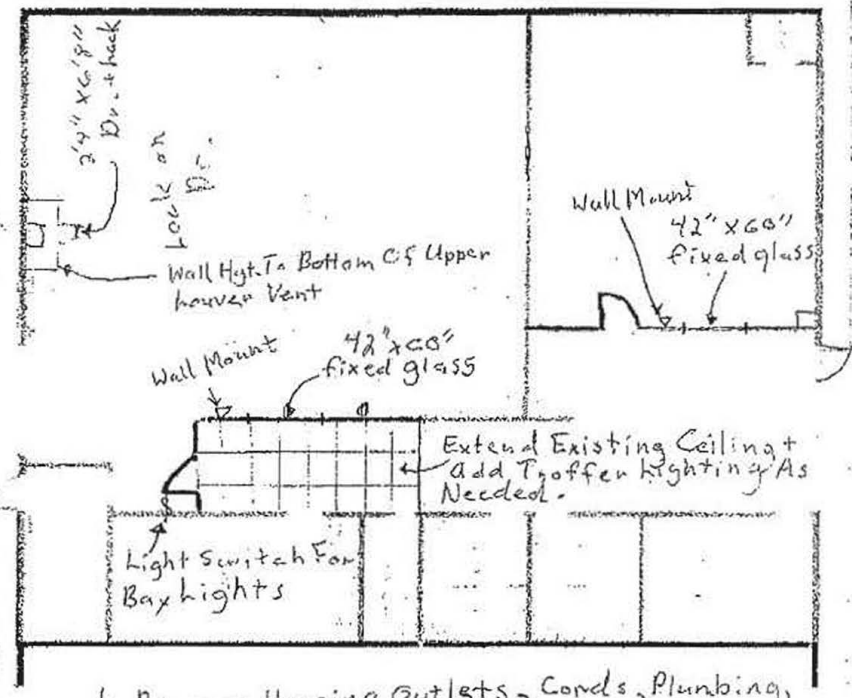 2'4" x 6'8"
Dr. +
Lock on
Dr.
Wall Hgt. To Bottom Of Upper
Louver Vent
Wall Mount
42" x 60"
fixed glass
Wall Mount
42" x 60"
fixed glass
Extend Existing Ceiling +
Add Troffer Lighting As
Needed.
Light Switch For
Bay Lights
Hanging Outlets, Cords, Plumbing,